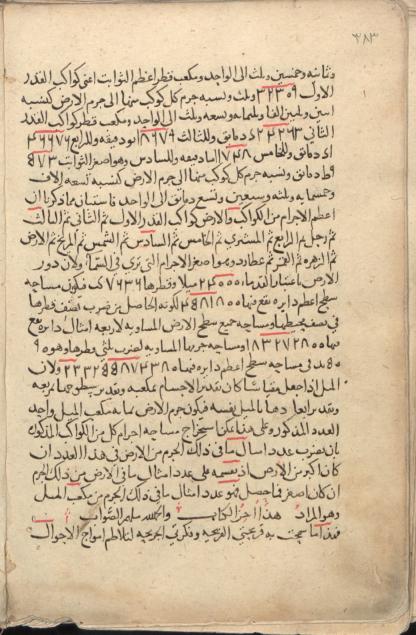 ٣٨٣
وثمانية وخمسين وثلث الى الواحد ومكعب قطر اعظم الثوابت اعنى كواكب القدر
الاول ٣٢٣٠٩ وثلث ونسبة جرم كل كوكب منها الى جرم الارض كنسبة
اثنين وثلثين الفا وثلثمائة وتسعة وثلث الى الواحد ومكعب قطر كواكب القدر
الثانى دقايق وللثالث دقيقة وللرابع
دقايق وللخامس دقيقة وللسادس وهو اصغر الثوابت
دقايق ونسبة جرم كل كوكب منها الى جرم الارض كنسبة تسعة الاف
وخمسمائة وثلثة وسبعين وتسع دقايق الى الواحد فاستبان مما ذكرنا ان
اعظم الاجرام من الكواكب والارض كواكب القدر الاول ثم الثانى ثم الثالث
ثم زحل ثم الرابع ثم المشترى ثم الخامس ثم السادس ثم الشمس ثم المريخ ثم الارض
ثم الزهرة ثم القمر ثم عطارد وهو اصغر الاجرام التى ترى فى السماء ولان دور
الارض باعتبار القدماء ٢٤٠٠٠ ميلا وقطرها ٧٦٣٦ يكون مساحة
سطح اعظم دايرة تقع فيها لكونه الحاصل من ضرب نصف قطرها
فى نصف محيطها ومساحة جميع سطح الارض المساوية لاربعة امثال دايرة تقع
فيها ومساحة جرمها المساوية لضرب ثلثى قطرها وهو
فى مساحة سطح اعظم دايرة فيها ولان
الميل اذا جعل مقياسا كان تقدير الاجسام بمكعبه وتقدير سطوحها بمربعه
وتقدير ابعادها بالميل نفسه فيكون جرم الارض بما به مكعب الميل واحد
العدد المذكور وعلى هذا يمكن استخراج مساحة اجرام كل من الكواكب المذكورة
بان نضرب عدد امثال ما فى ذلك الجرم من الارض فى هذا العدد ان
كان اكبر من الارض او نقسمه على عدد امثال ما فى الارض من ذلك الجرم
ان كان اصغر فما حصل فهو عدد امثال ما فى ذلك الجرم من مكعب الميل
وهو المراد هذا اخر الكتاب والحمد لله ملهم الصواب
فهذا ما سمحت به قريحتى القريحة وفكرتى الجريحة لتلاطم امواج الاحوال